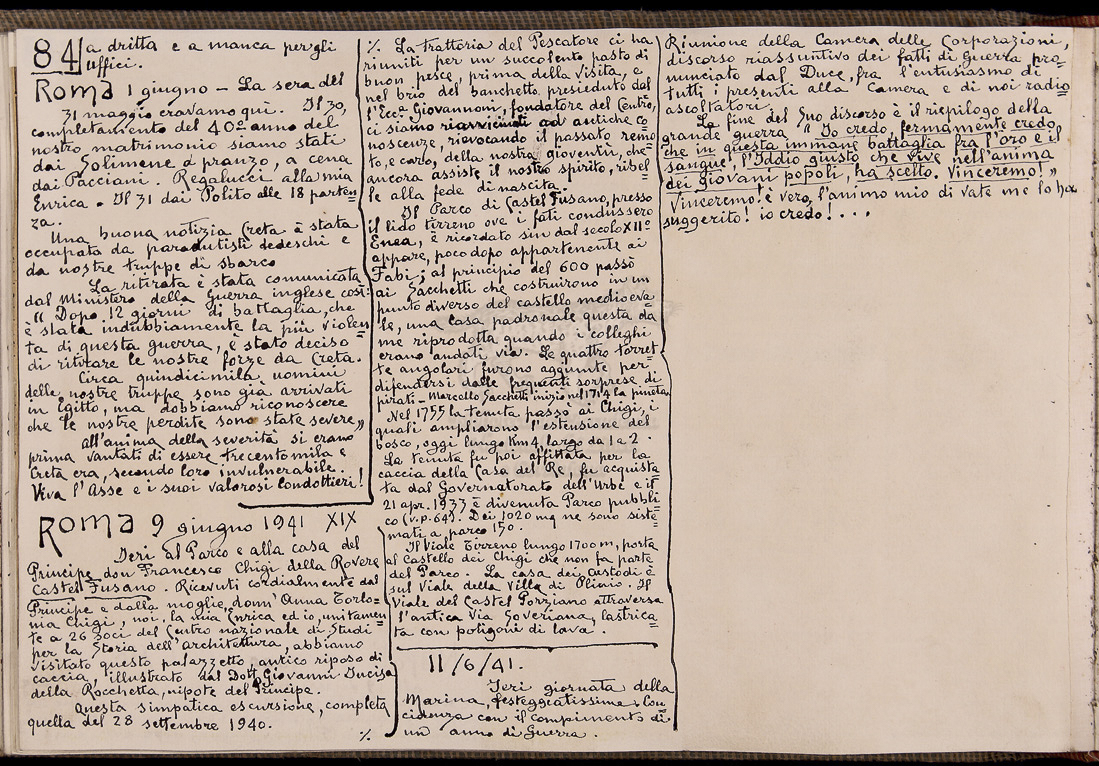 84 a dritta e a manca per gli
uffici.
Roma 1 giugno - La sera del
31 maggio eravamo qui. Il 30,
completamento del 40º anno del
nostro matrimonio siamo stati
dai Solimene a pranzo, a cena
dai Pacciani. Regalucci alla mia
Enrica - Il 31 dai Polito alle 18 parten=
za.
Una buona notizia Creta è stata
occupata da paracadutisti tedeschi e
da nostre truppe di sbarco
La ritirata è stata comunicata
dal Ministero della Guerra inglese così:
"Dopo 12 giorni di battaglia, che
è stata indubbiamente la più violen=
ta di questa guerra, è stato deciso
di ritirare le nostre forze da Creta.
Circa quindicimila uomini
delle nostre truppe sono già arrivati
in Egitto, ma dobbiamo riconoscere
che le nostre perdite sono state severe"
all'anima della severità si erano
prima vantati di essere trecentomila e
Creta era, secondo loro invulnerabile.
Viva l'Asse e i suoi valorosi condottieri!
Roma 9 giugno 1941 XIX
Ieri al Parco e alla casa del
Principe don Francesco Chigi della Rovere
Castel Fusano. Ricevuti cordialmente dal
Principe e dalla moglie donn'Anna Torlo=
nia Chigi, noi, la mia Enrica ed io, unitamen=
te a 26 soci del Centro nazionale di Studi
per la Storia dell'architettura, abbiamo
visitato questo palazzetto, antico riposo di
caccia, illustrato dal Dott. Giovanni Incisa
della Rocchetta, nipote del Principe.
Questa simpatica escursione, completa
quella del 28 settembre 1940.
%
% La trattoria del Pescatore ci ha
riuniti per un succolento pasto di
buon pesce, prima della visita, e
nel brio del banchetto presieduto dal
l'Ecc.a Giovannoni, fondatore del Centro,
ci siamo riavvicinati ad antiche co
noscenze, rievocando il passato remo
to, e caro, della nostra gioventù, che
ancora assiste il nostro spirito, ribel
le alla fede di nascita.
Il Parco di Castel Fusano, presso
il lido tirreno ove i fati condussero
Enea, è ricordato sin dal secolo XIIº
appare, poco dopo appartenente ai
Fabi; al principio del 600 passò
ai Sacchetti che costruirono in un
punto diverso del castello medioeva=
le, una casa padronale questa da
me riprodotta quando i colleghi
erano andati via. Le quattro torret=
te angolari furono aggiunte per
difendersi dalle frequenti sorprese di
pirati - Marcello Sacchetti iniziò nel 1714 la pineta
Nel 1755 la tenuta passò ai Chigi, i
quali ampliarono l'estensione del
bosco, oggi lungo Km 4, largo da 1 a 2.
La tenuta fu poi affittata per la
caccia della Casa del Re, fu acquista
ta dal Governatorato dell'Urbe e il
21 apr. 1933 è divenuta Parco pubbli=
co (v.p.64). Dei 1020 mq ne sono siste=
mati a parco 150.
Il Viale Tirreno lungo 1700 m, porta
al Castello dei Chigi che non fa parte
del Parco. La casa dei custodi è
sul Viale della Villa di Plinio. Il
Viale del Castel Porziano attraversa
l'antica Via Severiana, lastrica=
ta con poligoni di lava.
11/6/41.
Ieri giornata della
Marina, festeggiatissima. Coin
cidenza con il compimento di
un anno di Guerra.
Riunione della Camera delle Corporazioni,
discorso riassuntivo dei fatti di Guerra pro=
nunciato dal Duce, fra l'entusiasmo di
tutti i presenti alla Camera e di noi radio
ascoltatori.
La fine del suo discorso è il riepilogo della
grande guerra "Io credo, fermamente credo,
che in questa immane battaglia fra l'oro e il
sangue, l'Iddio giusto che vive nell'anima
dei giovani popoli, ha scelto. Vinceremo!"
Vinceremo! è vero, l'animo mio di vate me lo ha
suggerito! io credo! . . .